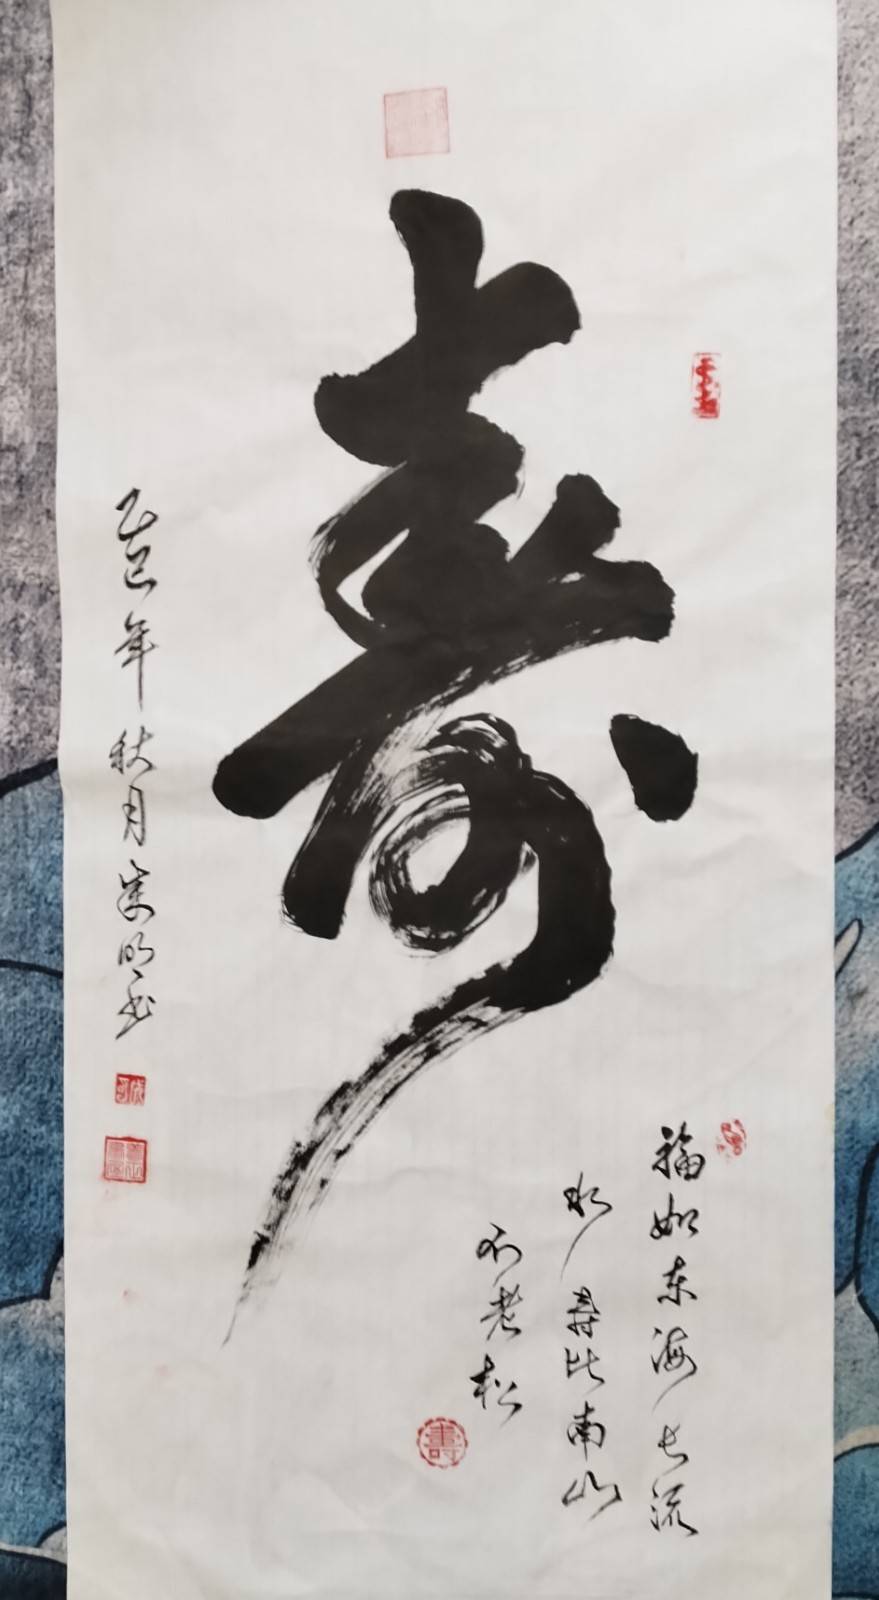 寿
福如东海长流
水寿比南山
不老松
乙巳年秋月宋明书
壽